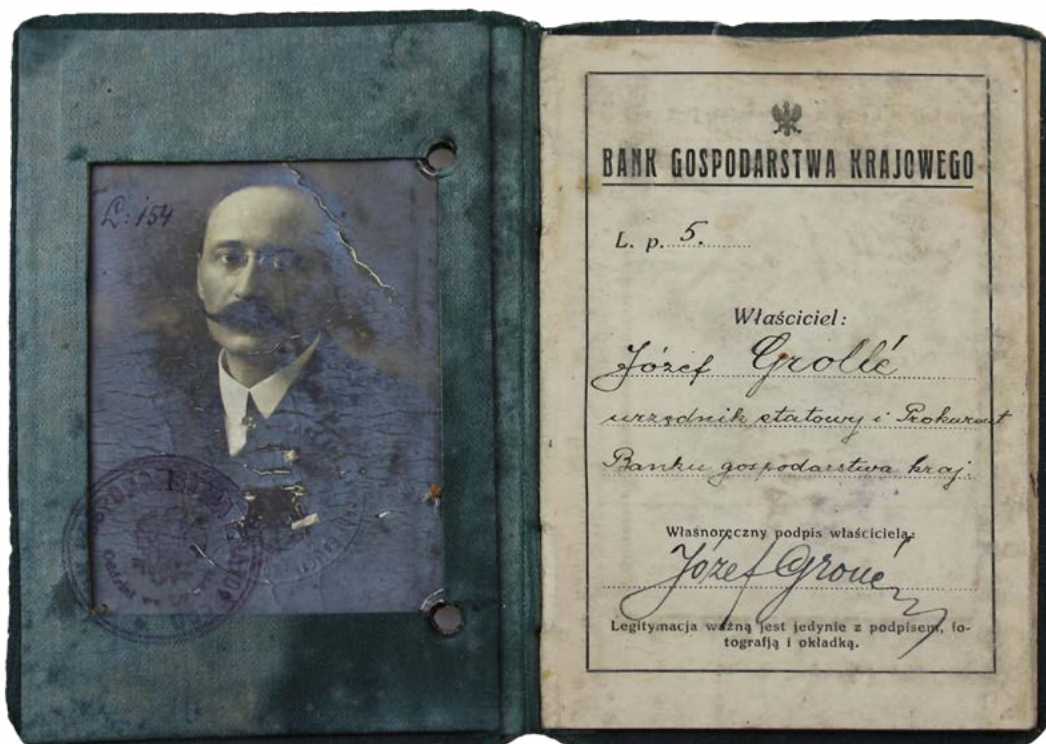 L: 154
BANK GOSPODARSTWA KRAJOWEGO
L. p. 5.
Właściciel:
Józef Grollé
urzędnik etatowy i Prokurent
Banku gospodarstwa kraj.
Własnoręczny podpis właściciela:
Józef Grollé
Legitymacja ważną jest jedynie z podpisem, fo-
tografją i okładką.